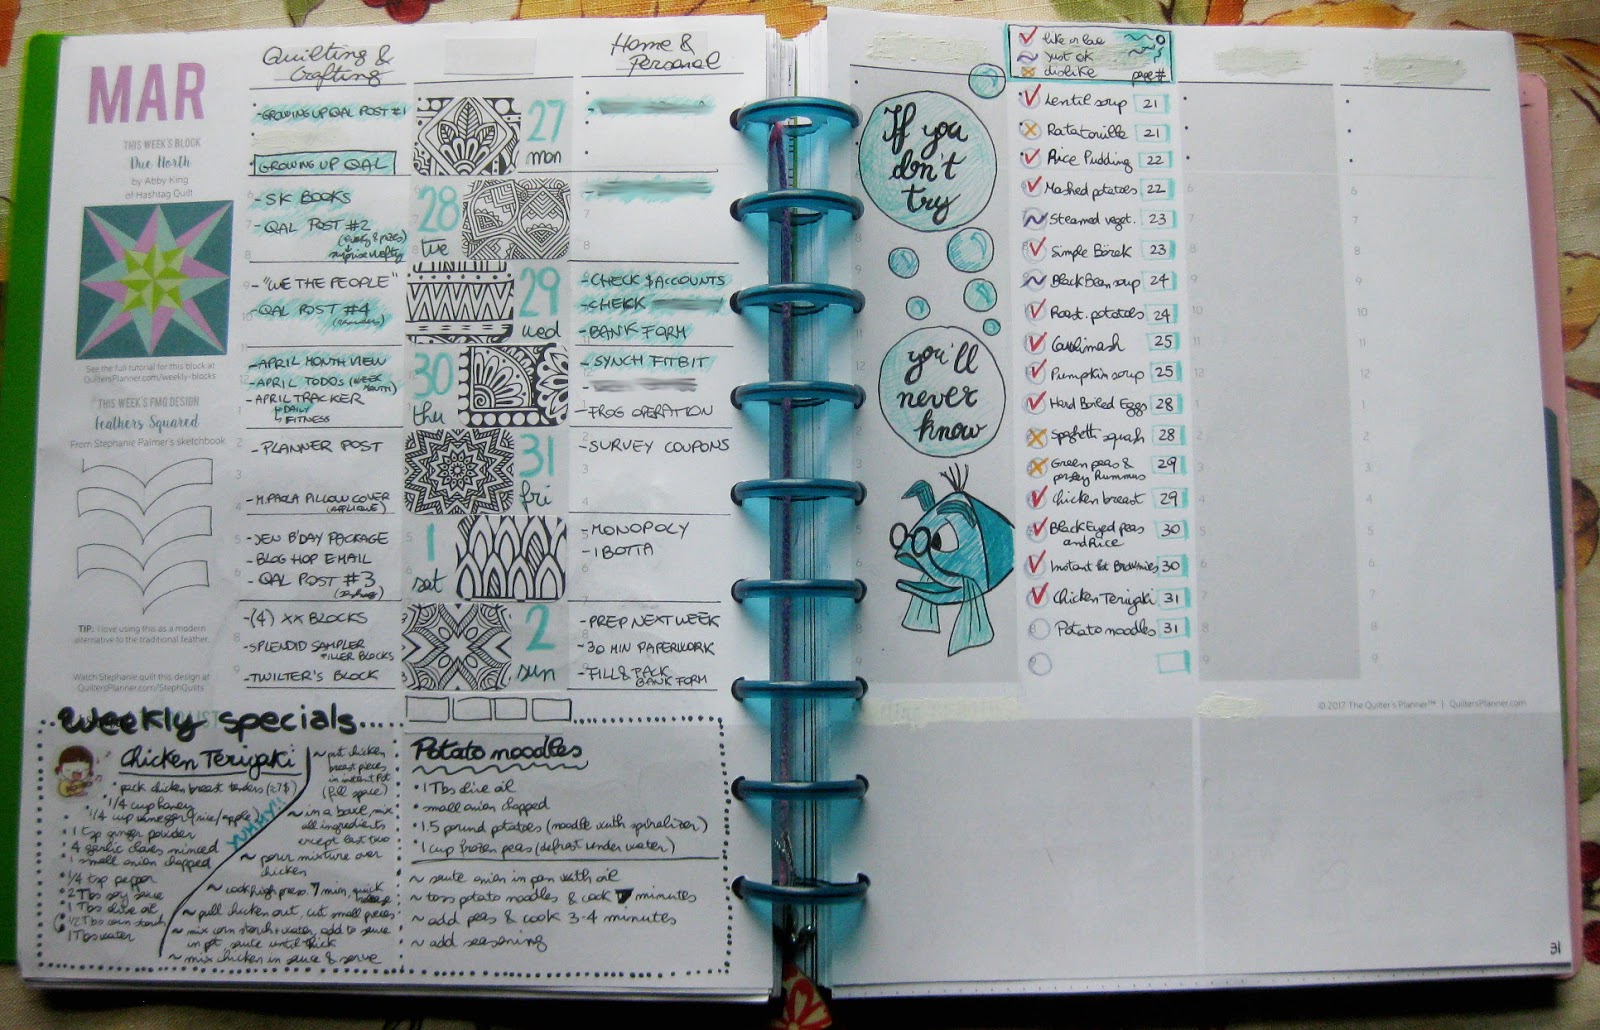 MAR
THIS WEEK'S BLOCK
Due North
by Abby King
of Hashtag Quilt
See the full tutorial for this block at
QuiltersPlanner.com/weekly-blocks
THIS WEEK'S FMQ DESIGN
Feathers Squared
From Stephanie Palmer's sketchbook
TIP: I love using this as a modern
alternative to the traditional feather.
Watch Stephanie quilt this design at
QuiltersPlanner.com/StephQuilts
Quilting &
Crafting
- GROWING UP QAL POST #1
GROWING UP QAL
- SK BOOKS
- QAL POST #2
- "WE THE PEOPLE"
- QAL POST #4
- APRIL MONTH VIEW
- APRIL TODOs (WEEK
MONTH)
- APRIL TRACKER
DAILY
FITNESS
- PLANNER POST
- M.PAOLA PILLOW COVER
(APPLIQUE)
- JEN B'DAY PACKAGE
- BLOG HOP EMAIL
- QAL POST #3
- (4) XX BLOCKS
- SPLENDID SAMPLER
FILLER BLOCKS
- TWILTER'S BLOCK
27
mon
28
tue
29
wed
30
thu
31
fri
1
sat
2
sun
Home &
Personal
- CHECK $ ACCOUNTS
- CHECK
- BANK FORM
- SYNCH FITBIT
- FROG OPERATION
- SURVEY COUPONS
- MONOPOLY
- IBOTTA
- PREP NEXT WEEK
- 30 MIN PAPERWORK
- FILL & PACK
BANK FORM
Weekly specials
Chicken Teriyaki
• pack chicken breast tenders (≥7$)
• 1/4 cup honey
• 1/4 cup vinegar (rice/apple)
• 1 tsp ginger powder
• 4 garlic cloves minced
• 1 small onion chopped
• 1/4 tsp pepper
• 2 Tbs soy sauce
• 1 Tbs olive oil
1/2 Tbs corn starch
1 Tbs water
YUMMY!!
~ put chicken
breast pieces
in instant Pot
(fill space)
~ in a bowl, mix
all ingredients
except last two
~ pour mixture over
chicken
~ cook high press. 7 min, quick
~ pull chicken out, cut small pieces
~ mix corn starch + water, add to sauce
in pot, saute until thick
~ mix chicken in sauce & serve
Potato noodles
• 1 Tbs olive oil
• small onion chopped
• 1.5 pound potatoes (noodle with spiralizer)
• 1 cup frozen peas (defrost under water)
~ saute onion in pan with oil
~ toss potato noodles & cook 7 minutes
~ add peas & cook 3-4 minutes
~ add seasoning
If you
don't
try
you'll
never
know
like or love
just ok
dislike
page #
Lentil soup 21
Ratatouille 21
Rice Pudding 22
Mashed potatoes 22
Steamed veget. 23
Simple Börek 23
Black Bean soup 24
Roast. potatoes 24
Caulimash 25
Pumpkin soup 25
Hard Boiled Eggs 28
Spaghetti squash 28
Green peas & 29
parsley Hummus
Chicken breast 29
Black Eyed peas 30
and Rice
Instant Pot Brownies 30
Chicken Teriyaki 31
Potato noodles 31
© 2017 The Quilter's Planner™ | QuiltersPlanner.com
31